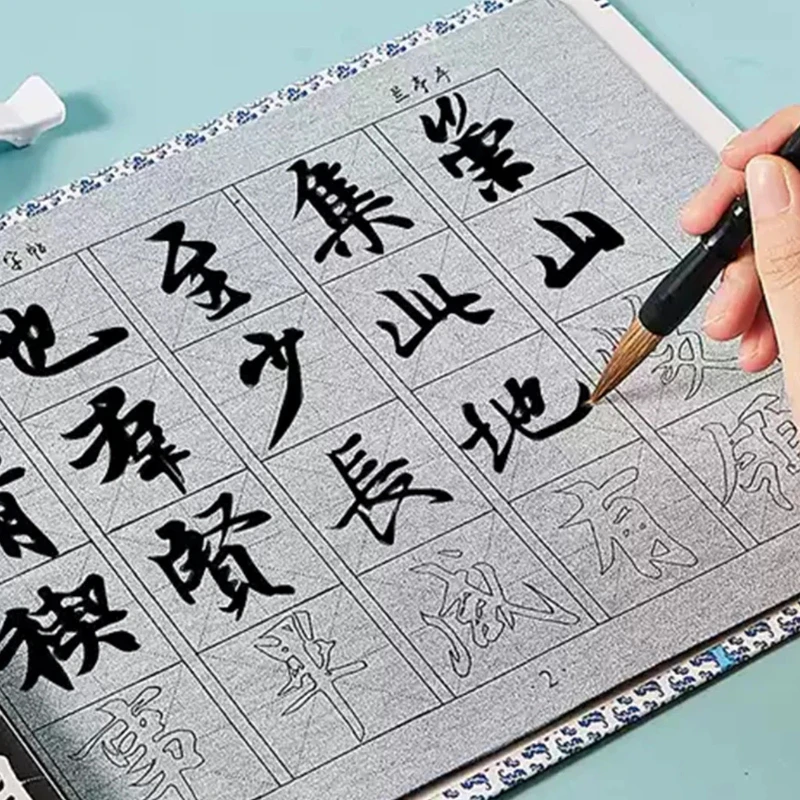 兰亭序
字帖
禊事
也羣賢畢
至少長咸
集此地有
崇山峻領
2